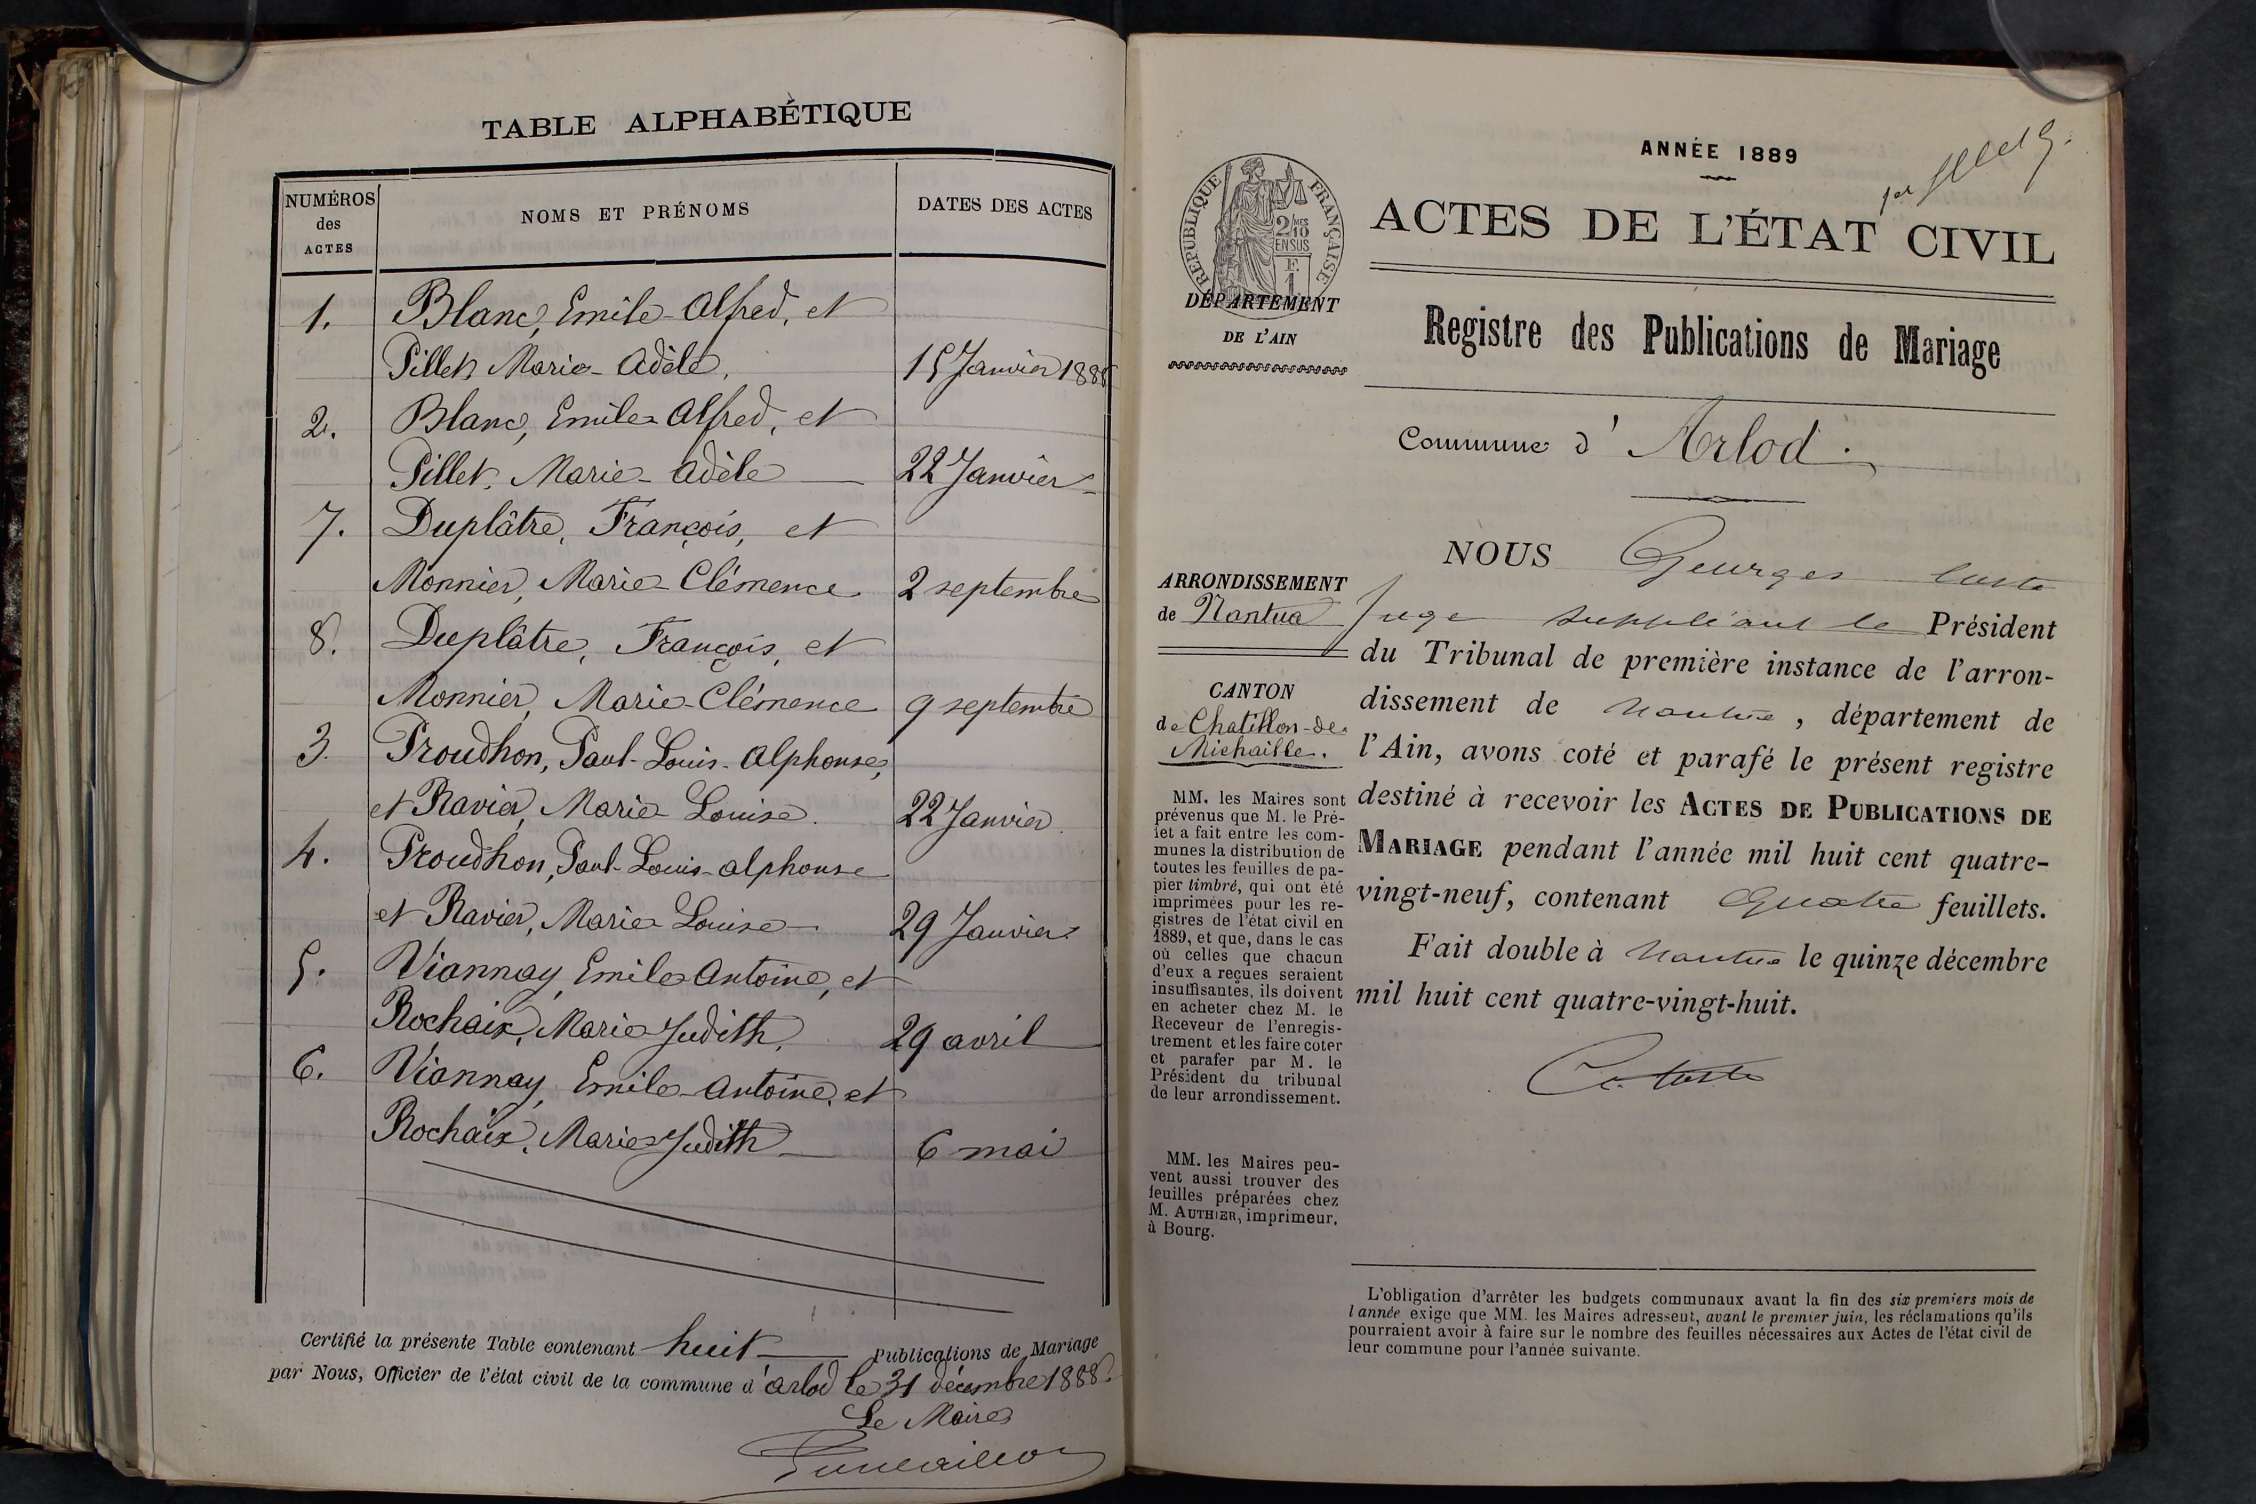 TABLE ALPHABÉTIQUE
NUMÉROS
des
ACTES
NOMS ET PRÉNOMS
DATES DES ACTES
1. Blanc, Emile-Alfred, et
Pillet, Marie-Adèle. 15 Janvier 1888
2. Blanc, Emile-Alfred, et
Pillet, Marie-Adèle 22 Janvier
7. Duplâtre, François, et
Monnier, Marie-Clémence 2 septembre
8. Duplâtre, François, et
Monnier, Marie-Clémence 9 septembre
3. Proudhon, Paul-Louis-Alphonse,
et Ravier, Marie Louise. 22 Janvier.
4. Proudhon, Paul-Louis-alphonse
et Ravier, Marie Louise 29 Janvier
5. Viannay, Emile Antoine, et
Rochaix, Marie Judith. 29 avril
6. Viannay, Emile-Antoine, et
Rochaix, Marie Judith 6 mai
Certifié la présente Table contenant huit Publications de Mariage
par Nous, Officier de l'état civil de la commune d'Arlod le 31 décembre 1888.
Le Maire
ANNÉE 1889
ACTES DE L'ÉTAT CIVIL
RÉPUBLIQUE FRANÇAISE
2/MES
10
EN SUS
F.
1
DÉPARTEMENT
DE L'AIN
Registre des Publications de Mariage
Commune d'Arlod.
ARRONDISSEMENT
de Nantua
CANTON
de Chatillon-de-
Michaille.
MM. les Maires sont
prévenus que M. le Pré-
fet a fait entre les com-
munes la distribution de
toutes les feuilles de pa-
pier timbré, qui ont été
imprimées pour les re-
gistres de l'état civil en
1889, et que, dans le cas
où celles que chacun
d'eux a reçues seraient
insuffisantes, ils doivent
en acheter chez M. le
Receveur de l'enregis-
trement et les faire coter
et parafer par M. le
Président du tribunal
de leur arrondissement.
MM. les Maires peu-
vent aussi trouver des
feuilles préparées chez
M. AUTHIER, imprimeur,
à Bourg.
NOUS Georges
Juge suppléant le Président
du Tribunal de première instance de l'arron-
dissement de Nantua, département de
l'Ain, avons coté et parafé le présent registre
destiné à recevoir les ACTES DE PUBLICATIONS DE
MARIAGE pendant l'année mil huit cent quatre-
vingt-neuf, contenant Quatre feuillets.
Fait double à Nantua le quinze décembre
mil huit cent quatre-vingt-huit.
L'obligation d'arrêter les budgets communaux avant la fin des six premiers mois de
l'année exige que MM. les Maires adressent, avant le premier juin, les réclamations qu'ils
pourraient avoir à faire sur le nombre des feuilles nécessaires aux Actes de l'état civil de
leur commune pour l'année suivante.